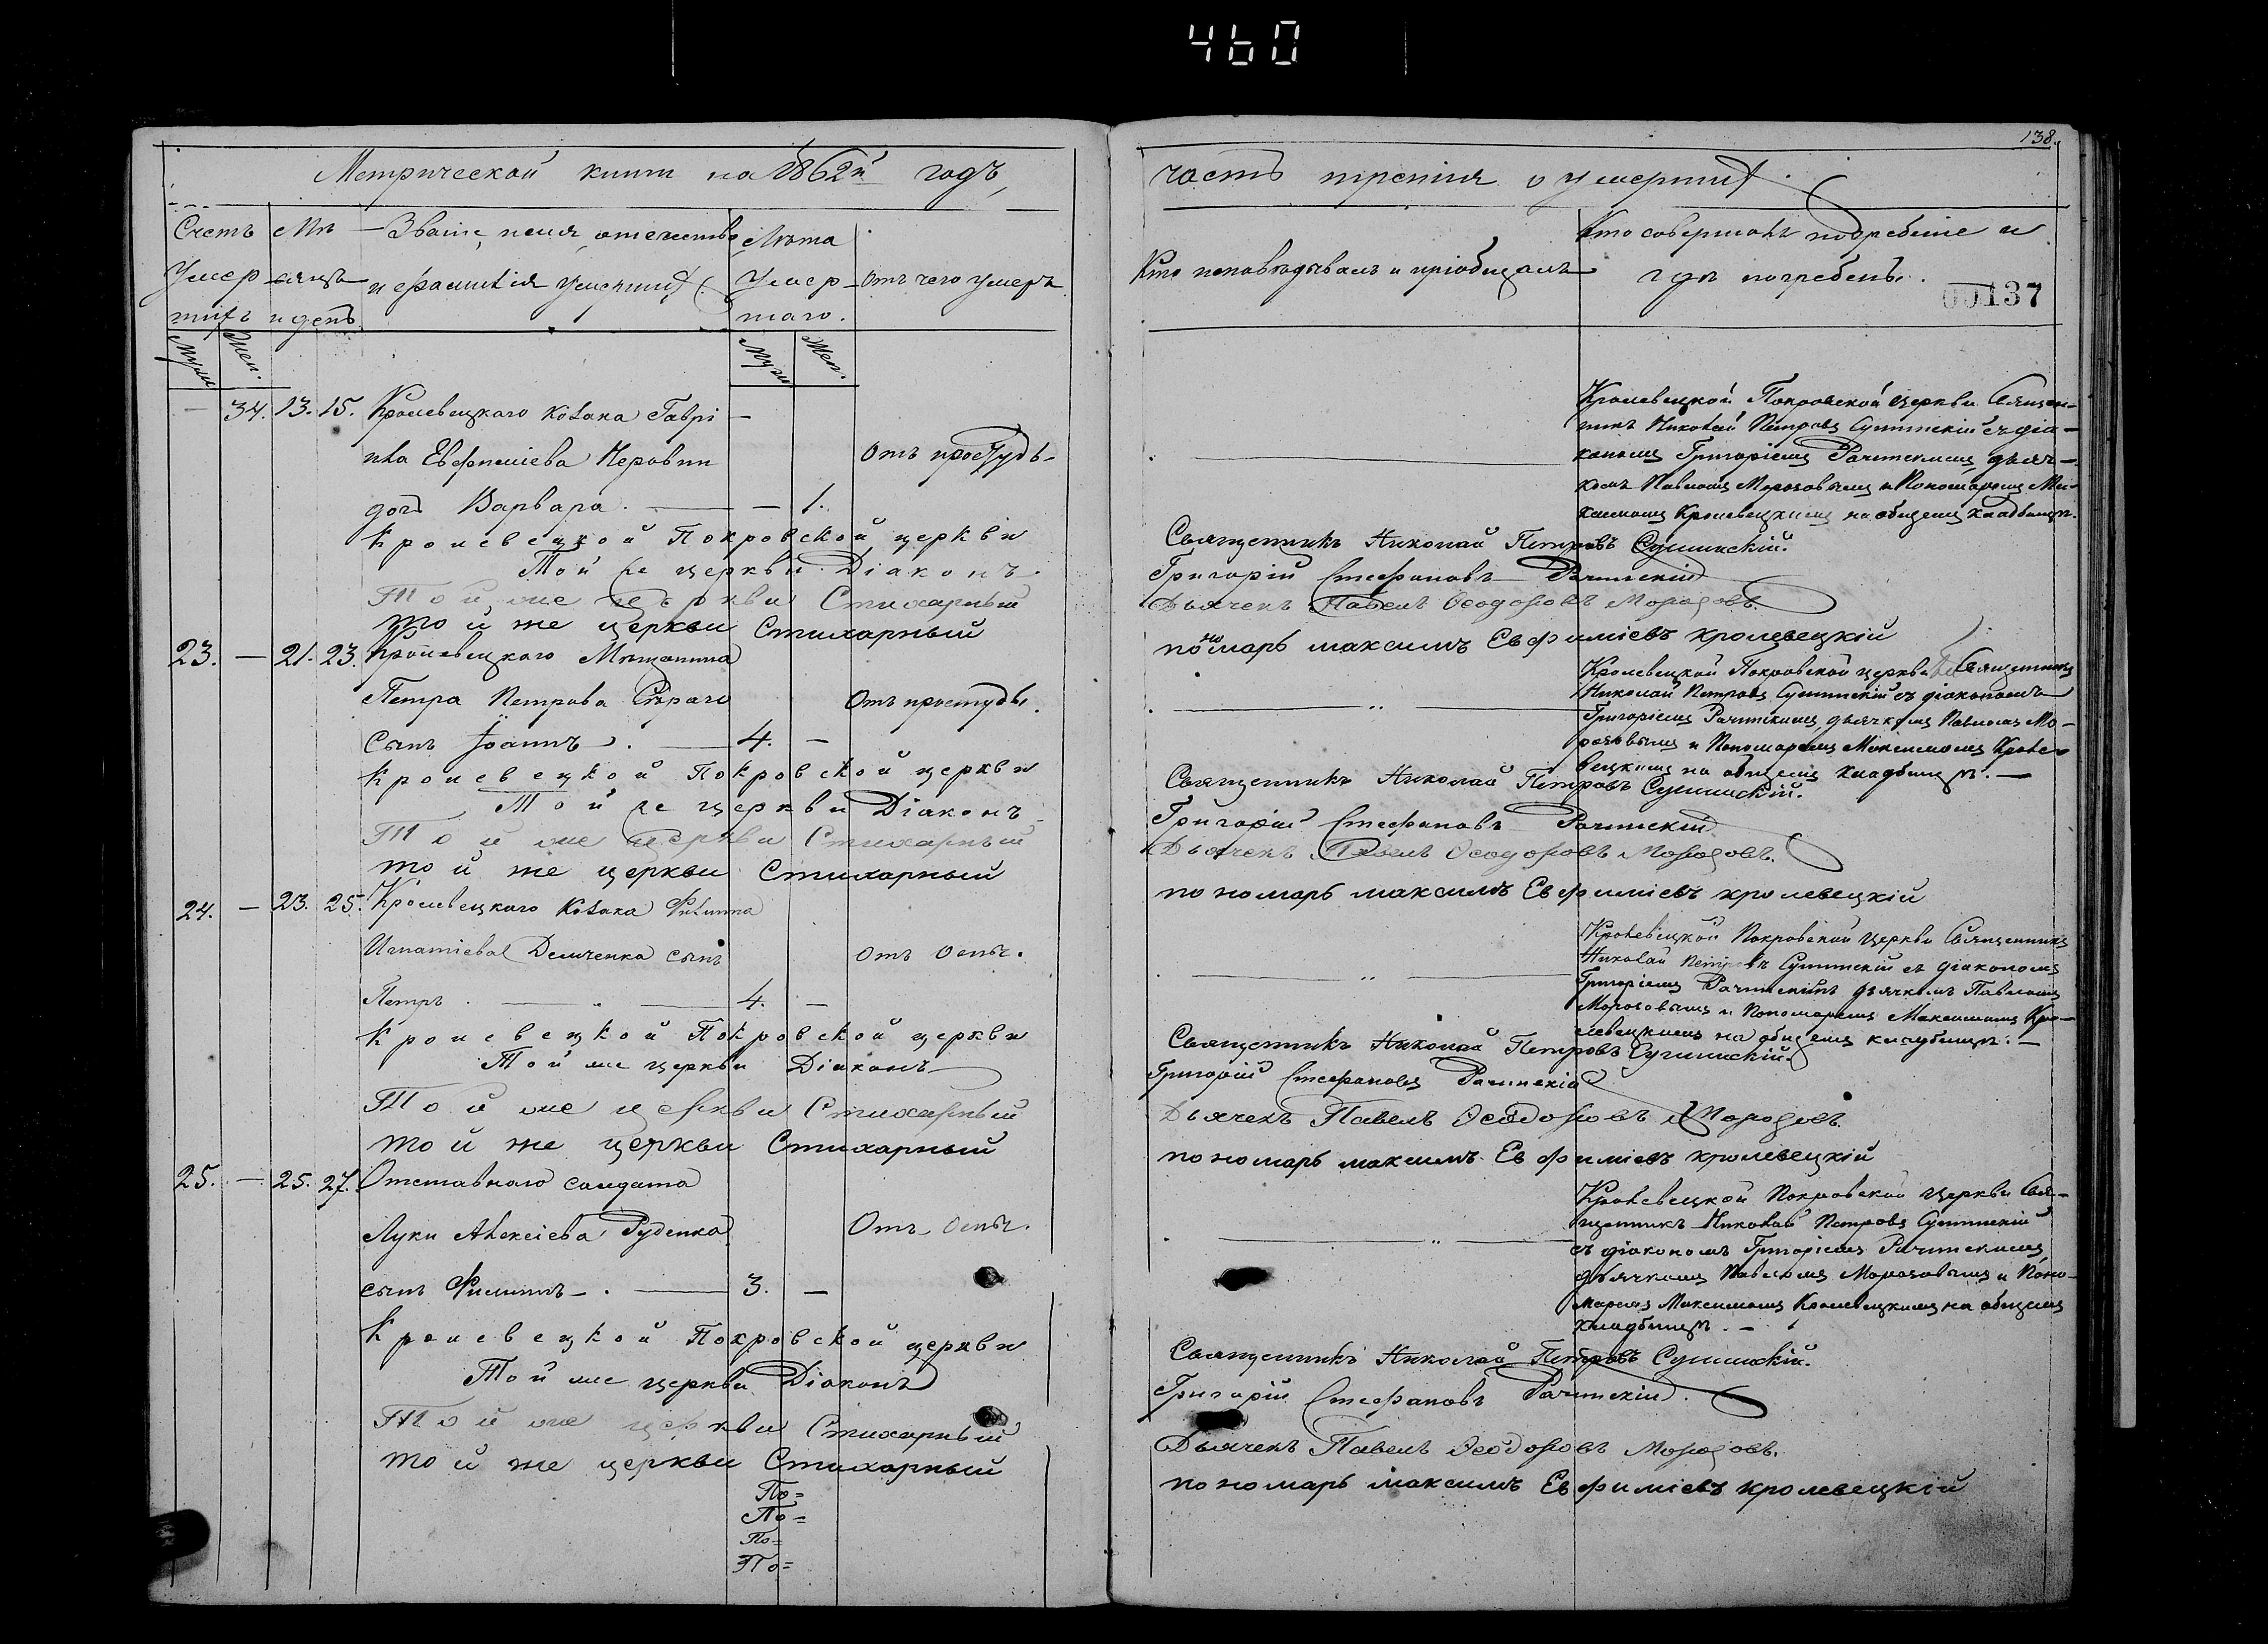 460
138.
Метрической книги на 1862й годъ
часть третія о умершихъ.
Счетъ умершихъ
Мѣсяцъ и день
Званіе, имя, отечество и фамилія умершихъ.
Лѣта умершаго.
Отъ чего умеръ
Кто исповѣдывалъ и пріобщалъ
Кто совершалъ погребеніе и
гдѣ погребены.
00137
Муж.
Жен.
Муж.
Жен.
— 34. 13. 15. Кролевецкаго Козака Гаврі
ила Евфиміева
Отъ простуды
дочь Варвара. — — 1.
Кролевецкой Покровской церкви Священ-
никъ Николай Петровъ съ діа-
кономъ Григоріемъ дьяч-
комъ Павломъ Морозовымъ и Пономаремъ Мак-
симомъ Кролевецкимъ на общемъ кладбищѣ.
Кролевецкой Покровской церкви Священникъ Николай Петровъ
Той же церкви Діаконъ Григорій Стефановъ
Той же церкви Стихарный Дьячекъ Павелъ Ѳеодоровъ Морозовъ.
той же церкви Стихарный пономарь максимъ Евфиміевъ кролевецкій
23. — 21. 23. Кролевецкаго Мѣщанина
Петра Петрова
Отъ простуды.
Сынъ Іоаннъ. — 4. —
Кролевецкой Покровской церкви Священникъ
Николай Петровъ съ діакономъ
Григоріемъ дьячкомъ Павломъ Мо-
розовымъ и Пономаремъ Максимомъ Кроле-
вецкимъ на общемъ кладбищѣ. —
Кролевецкой Покровской церкви Священникъ Николай Петровъ
Той же церкви Діаконъ Григорій Стефановъ
Той же церкви Стихарный Дьячекъ Павелъ Ѳеодоровъ Морозовъ.
той же церкви Стихарный пономарь максимъ Евфиміевъ кролевецкій
24. — 23. 25. Кролевецкаго Козака Филиппа
Игнатіева Демченка сынъ
Отъ оспы.
Петръ. — 4. —
Кролевецкой Покровской церкви Священникъ
Николай Петровъ съ діакономъ
Григоріемъ дьячкомъ Павломъ
Морозовымъ и Пономаремъ Максимомъ Кро-
левецкимъ на общемъ кладбищѣ. —
Кролевецкой Покровской церкви Священникъ Николай Петровъ
Той же церкви Діаконъ Григорій Стефановъ
Той же церкви Стихарный Дьячекъ Павелъ Ѳеодоровъ Морозовъ.
той же церкви Стихарный пономарь максимъ Евфиміевъ кролевецкій
25. — 25. 27. Отставнаго солдата
Луки Алексіева Руденка
Отъ оспы.
сынъ Филиппъ — 3. —
Кролевецкой Покровской церкви Свя-
щенникъ Николай Петровъ
съ діакономъ Григоріемъ
дьячкомъ Павломъ Морозовымъ и Поно-
маремъ Максимомъ Кролевецкимъ на общемъ
кладбищѣ. —
Кролевецкой Покровской церкви Священникъ Николай Петровъ
Той же церкви Діаконъ Григорій Стефановъ
Той же церкви Стихарный Дьячекъ Павелъ Ѳеодоровъ Морозовъ.
той же церкви Стихарный пономарь максимъ Евфиміевъ кролевецкій
По=
По=
По=
По=